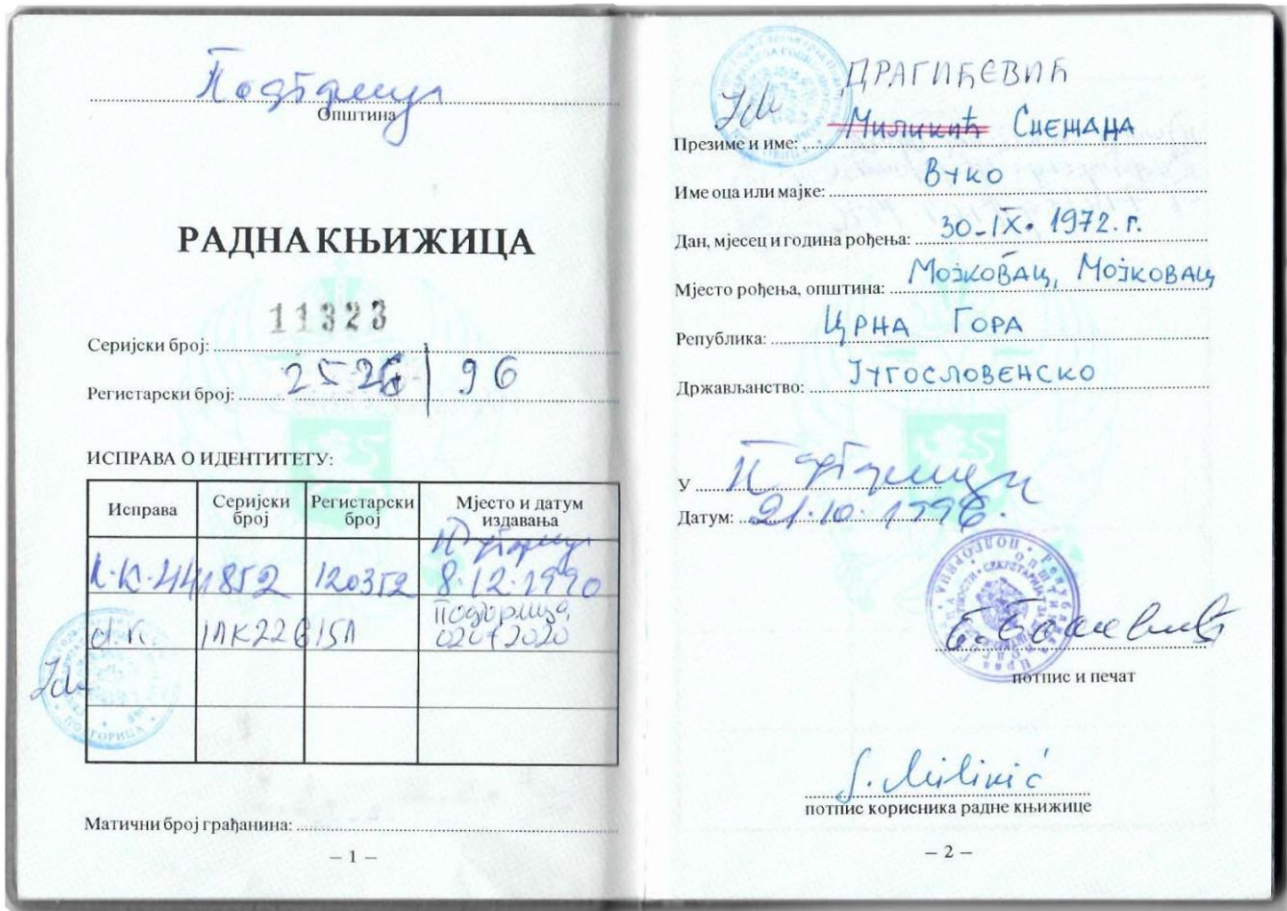 Подгорица
Општина
РАДНА КЊИЖИЦА
11323
Серијски број:
Регистарски број: 2526/96
ИСПРАВА О ИДЕНТИТЕТУ:
Исправа Серијски број Регистарски број Мјесто и датум издавања
Л.К. 441852 120352 Подгорица 8.12.1990
Л.К. Подгорица,
Матични број грађанина:
– 1 –
ДРАГИЋЕВИЋ
Презиме и име: Миликић СНЕЖАНА
Име оца или мајке: Вуко
Дан, мјесец и година рођења: 30-IX. 1972. г.
Мјесто рођења, општина: МОЈКОВАЦ, МОЈКОВАЦ
Република: ЦРНА ГОРА
Држављанство: ЈУГОСЛОВЕНСКО
У Подгорици
Датум: 21.10.1996.
потпис и печат
S. Milikić
потпис корисника радне књижице
– 2 –